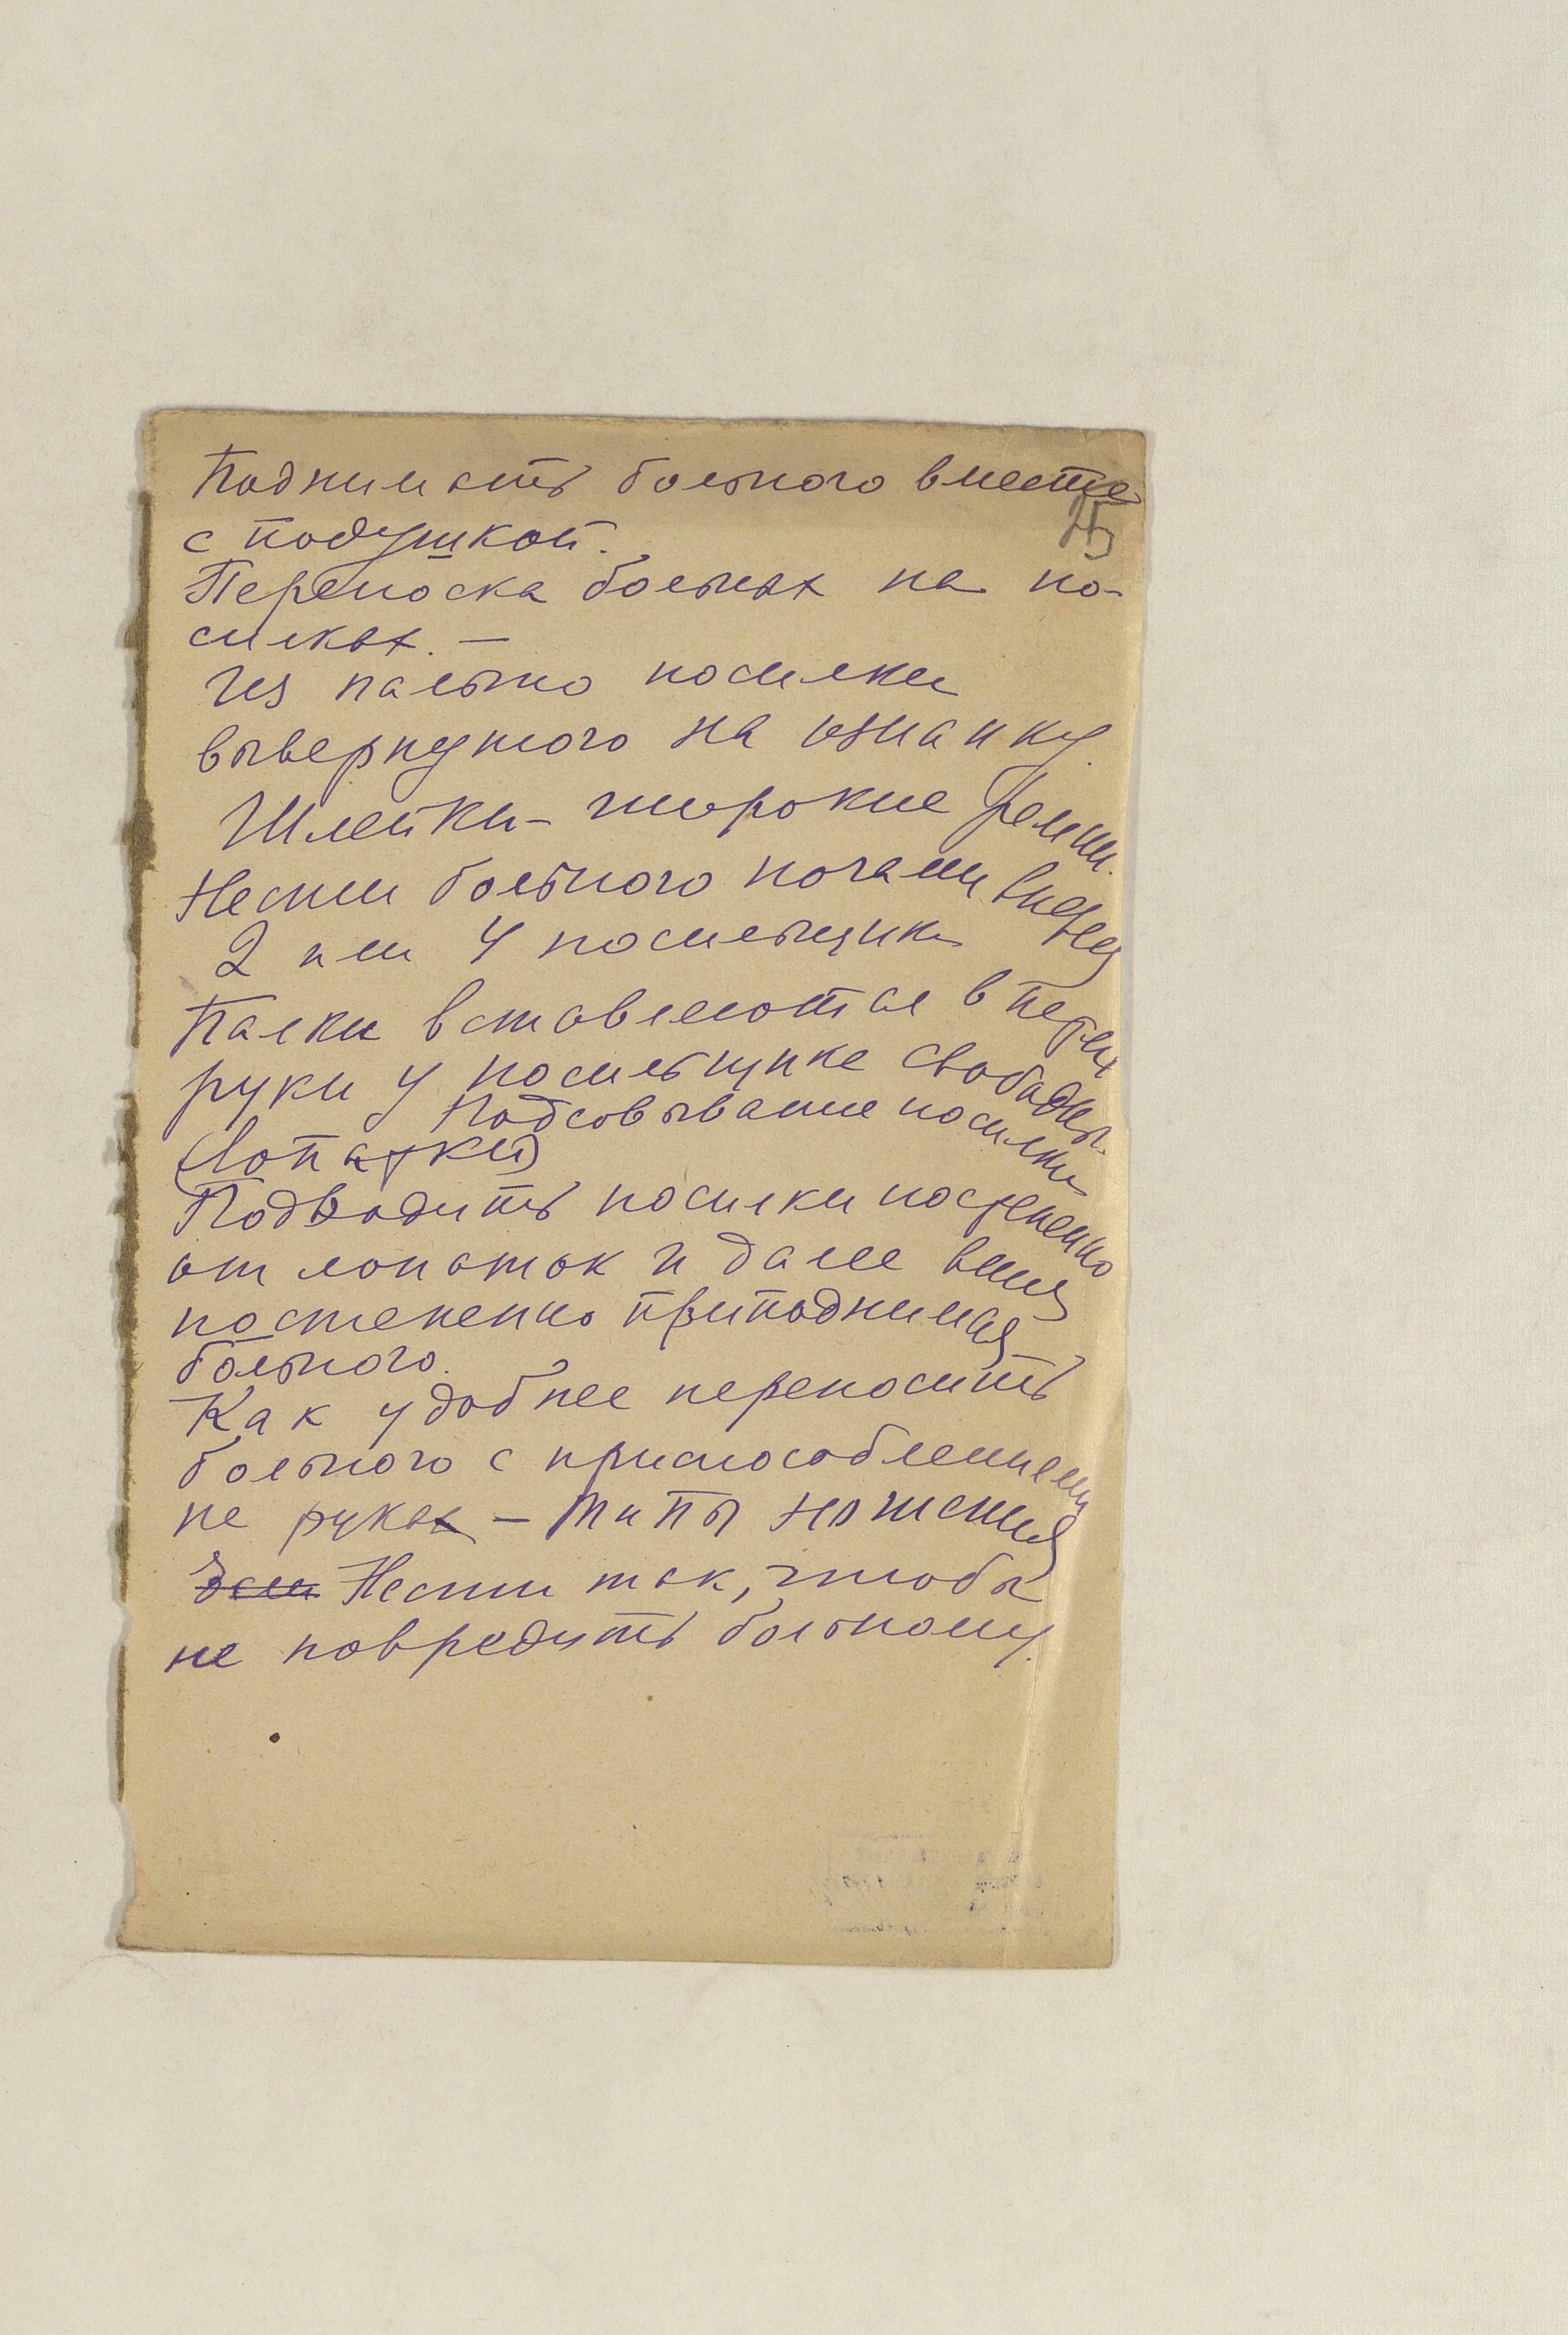 Поднимать больного вместе
25
с подушкой.
Переноска больных на но-
силках. —
Из пальто носилки
вывернутого на изнанку.
Шлейки – широкие ремни.
Нести больного ногами вперед
2 или 4 носильщик
Палки вставляются в петли
руки у носильщика свободны.
Подсовывание носилки
(Лопатки)
Подводить носилки постепенно
от лопаток и далее вниз
постепенно приподнимая
больного.
Как удобнее переносить
больного с приспособлением
на руках – типы ношения
Нести так, чтобы
не повредить больному.